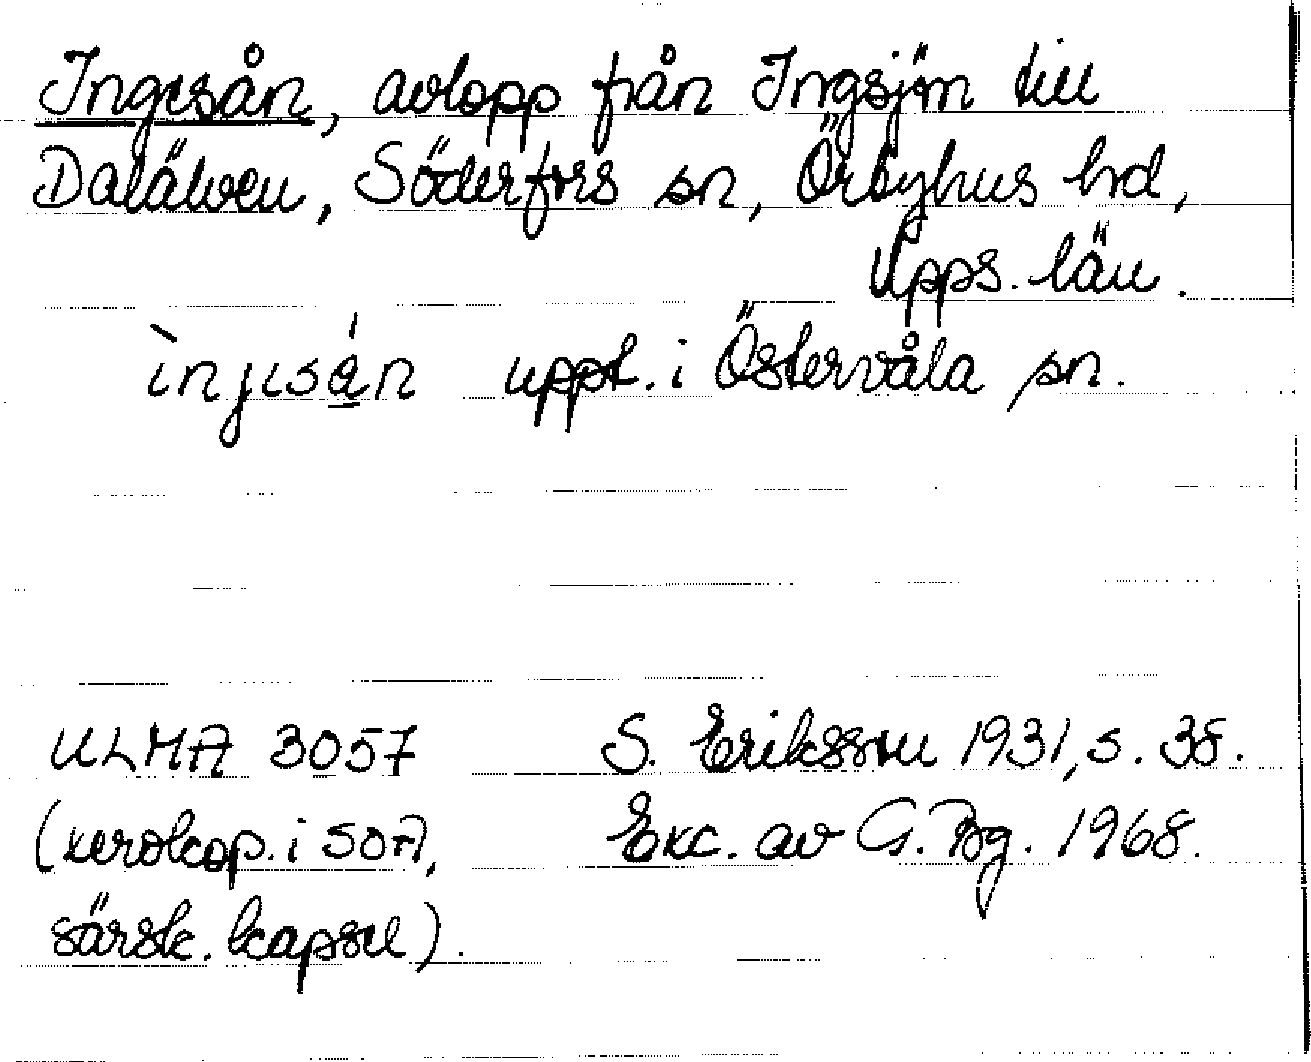 Ingesån, avlopp från Ingsjön till
Dalälven, Söderfors sn, Örbyhus hd,
Upps. län.
ìnjɩsån uppt. i Östervåla sn.
ULMA 3057 S. Eriksson 1931, s. 38.
(xerokop. i SOA, Exc. av G. Bg. 1968.
särsk. kapsel).